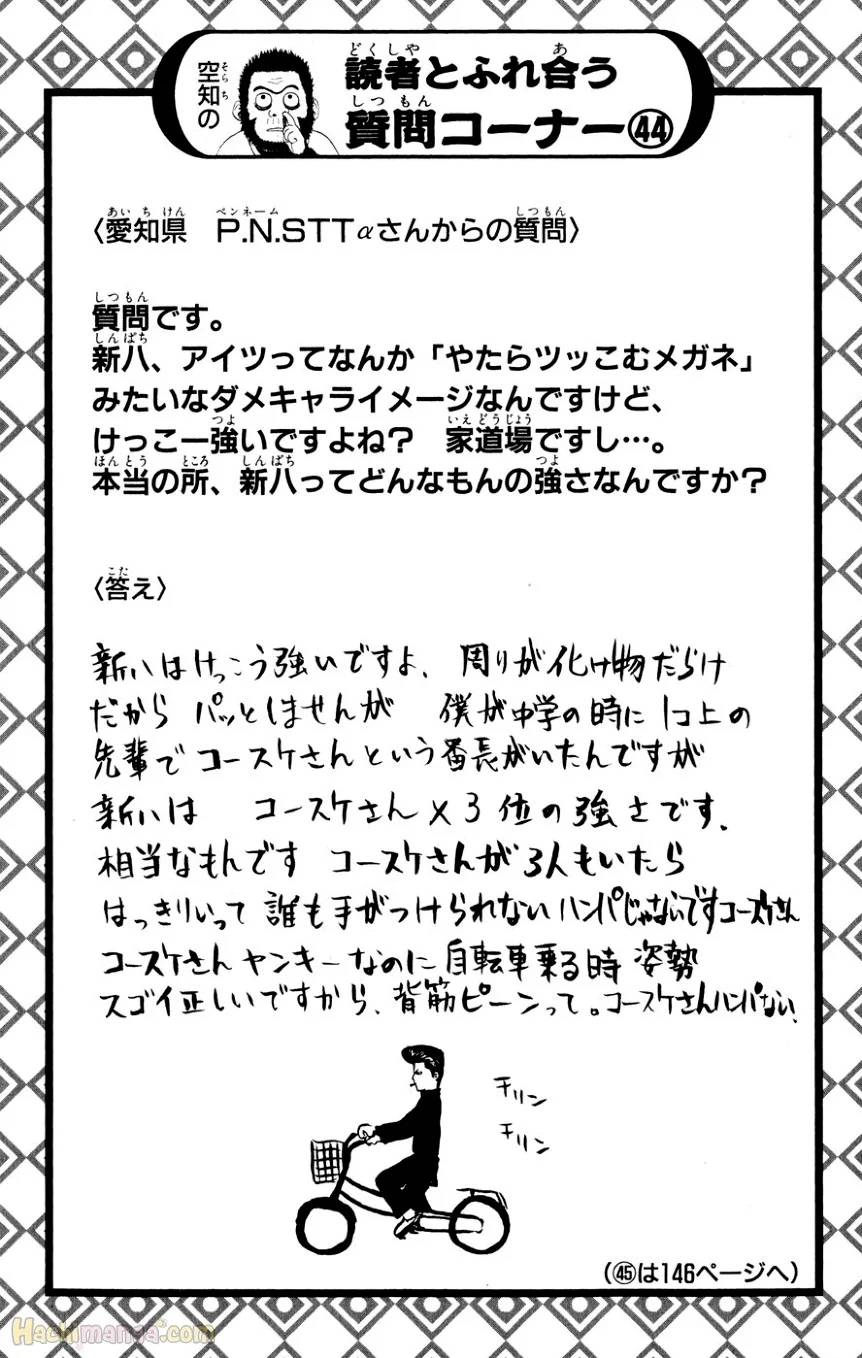 空知の
読者とふれ合う
質問コーナー㊹
〈愛知県　P.N.STTαさんからの質問〉
質問です。
新八、アイツってなんか「やたらツッこむメガネ」
みたいなダメキャライメージなんですけど、
けっこー強いですよね？　家道場ですし…。
本当の所、新八ってどんなもんの強さなんですか？
〈答え〉
新八はけっこう強いですよ、周りが化け物だらけ
だから パッとしませんが 僕が中学の時に 1コ上の
先輩で コースケさんという番長がいたんですが
新八は コースケさん×3 位の強さです.
相当なもんです コースケさんが3人もいたら
はっきりいって 誰も手がつけられない ハンパじゃないですコースケさん
コースケさん ヤンキーなのに 自転車乗る時 姿勢
スゴイ正しいですから、背筋ピーンって。コースケさんハンパない.
チリン
チリン
(㊺は146ページへ)
Hachimanga.com